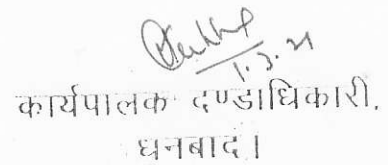 1.3.21
कार्यपालक दण्डाधिकारी,
धनबाद।